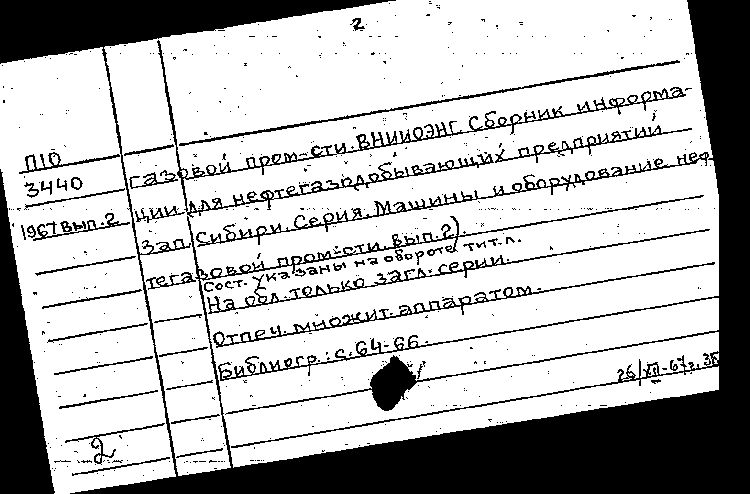 2
П10
3440
1967 вып. 2
газовой пром-сти. ВНИИОЭНГ. Сборник информа-
ции для нефтегазодобывающих предприятий
Зап. Сибири. Серия. Машины и оборудование неф-
тегазовой пром-сти. вып. 2).
Сост. указаны на обороте тит. л.
На обл. только загл. серии.
Отпеч. множит. аппаратом.
Библиогр.: с. 64-66.
26/XII-67г.
2